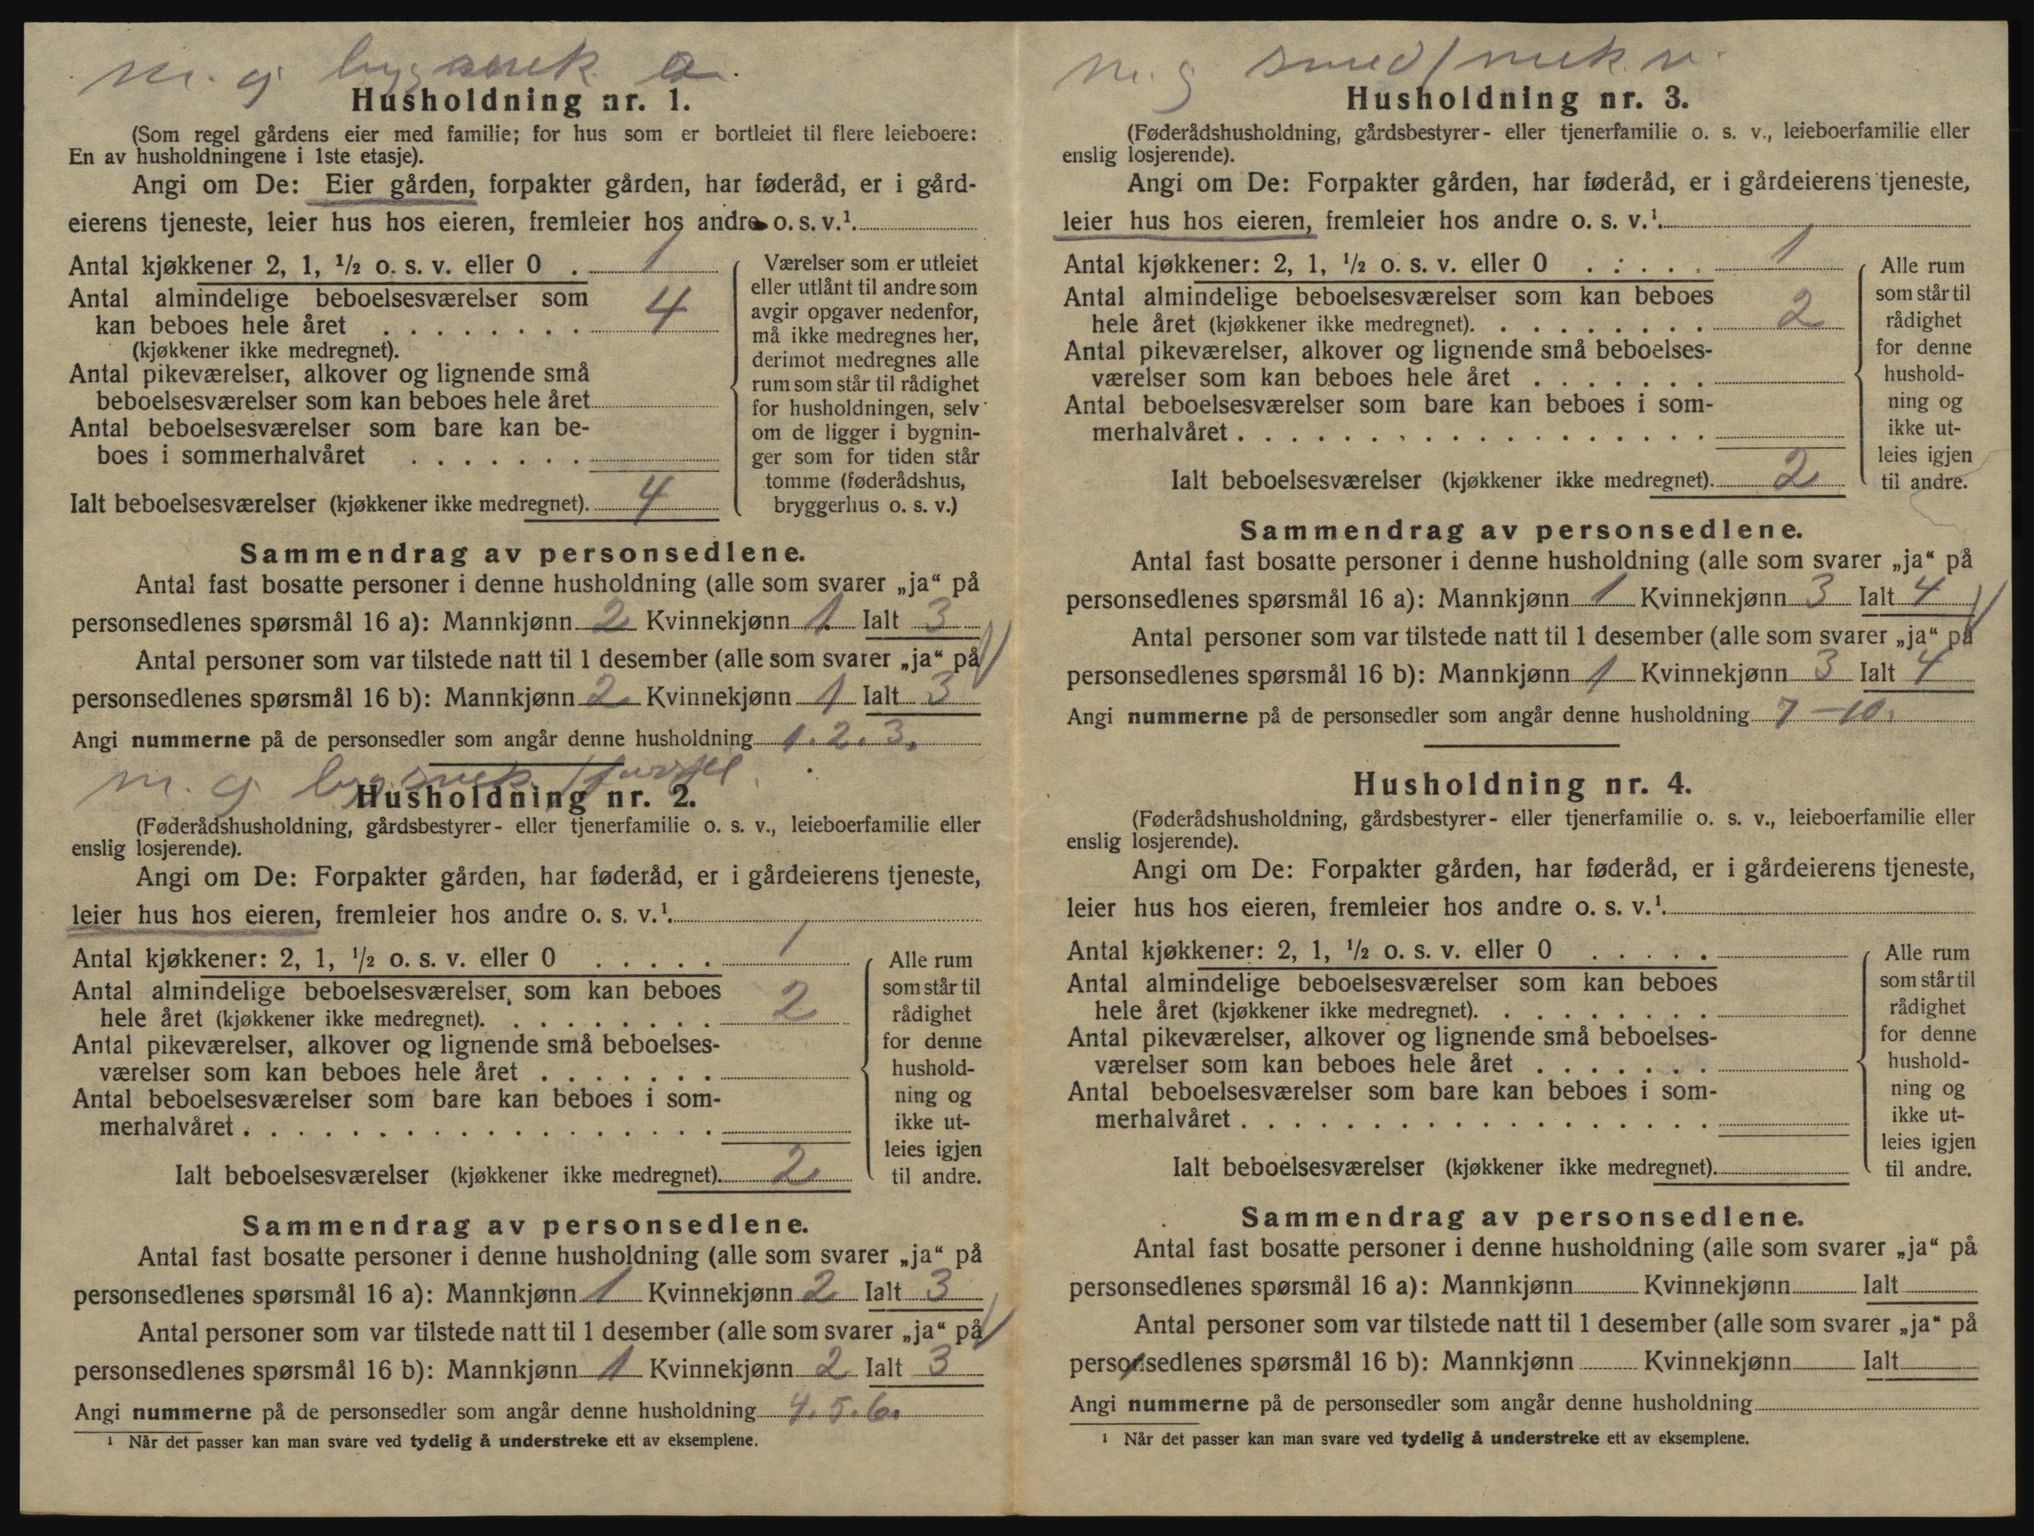 m. g bygsnek a.
Husholdning nr. 1.
(Som regel gårdens eier med familie; for hus som er bortleiet til flere leieboere:
En av husholdningene i 1ste etasje).
Angi om De: Eier gården, forpakter gården, har føderåd, er i gård-
eierens tjeneste, leier hus hos eieren, fremleier hos andre o. s. v.¹.
Antal kjøkkener 2, 1, ½ o. s. v. eller 0 . 1
Antal almindelige beboelsesværelser som
kan beboes hele året . . . . . . . . 4
(kjøkkener ikke medregnet).
Antal pikeværelser, alkover og lignende små
beboelsesværelser som kan beboes hele året
Antal beboelsesværelser som bare kan be-
boes i sommerhalvåret . . . . . . .
Ialt beboelsesværelser (kjøkkener ikke medregnet). 4
Værelser som er utleiet
eller utlånt til andre som
avgir opgaver nedenfor,
må ikke medregnes her,
derimot medregnes alle
rum som står til rådighet
for husholdningen, selv
om de ligger i bygnin-
ger som for tiden står
tomme (føderådshus,
bryggerhus o. s. v.)
Sammendrag av personsedlene.
Antal fast bosatte personer i denne husholdning (alle som svarer „ja“ på
personsedlenes spørsmål 16 a): Mannkjønn 2 Kvinnekjønn 1 Ialt 3
Antal personer som var tilstede natt til 1 desember (alle som svarer „ja“ på
personsedlenes spørsmål 16 b): Mannkjønn 2 Kvinnekjønn 1 Ialt 3
Angi nummerne på de personsedler som angår denne husholdning 1. 2. 3.
m. g
Husholdning nr. 2.
(Føderådshusholdning, gårdsbestyrer- eller tjenerfamilie o. s. v., leieboerfamilie eller
enslig losjerende).
Angi om De: Forpakter gården, har føderåd, er i gårdeierens tjeneste,
leier hus hos eieren, fremleier hos andre o. s. v.¹.
Antal kjøkkener: 2, 1, ½ o. s. v. eller 0 . . . . . 1
Antal almindelige beboelsesværelser som kan beboes
hele året (kjøkkener ikke medregnet). . . . . . . . . 2
Antal pikeværelser, alkover og lignende små beboelses-
værelser som kan beboes hele året . . . . . . .
Antal beboelsesværelser som bare kan beboes i som-
merhalvåret . . . . . . . . . . . . . . . . . .
Ialt beboelsesværelser (kjøkkener ikke medregnet). 2
Alle rum
som står til
rådighet
for denne
hushold-
ning og
ikke ut-
leies igjen
til andre.
Sammendrag av personsedlene.
Antal fast bosatte personer i denne husholdning (alle som svarer „ja“ på
personsedlenes spørsmål 16 a): Mannkjønn 1 Kvinnekjønn 2 Ialt 3
Antal personer som var tilstede natt til 1 desember (alle som svarer „ja“ på
personsedlenes spørsmål 16 b): Mannkjønn 1 Kvinnekjønn 2 Ialt 3
Angi nummerne på de personsedler som angår denne husholdning 4. 5. 6.
¹ Når det passer kan man svare ved tydelig å understreke ett av eksemplene.
m. g smed/mek.v.
Husholdning nr. 3.
(Føderådshusholdning, gårdsbestyrer- eller tjenerfamilie o. s. v., leieboerfamilie eller
enslig losjerende).
Angi om De: Forpakter gården, har føderåd, er i gårdeierens tjeneste,
leier hus hos eieren, fremleier hos andre o. s. v.¹.
Antal kjøkkener: 2, 1, ½ o. s. v. eller 0 . . . . . 1
Antal almindelige beboelsesværelser som kan beboes
hele året (kjøkkener ikke medregnet). . . . . . . . . 2
Antal pikeværelser, alkover og lignende små beboelses-
værelser som kan beboes hele året . . . . . . .
Antal beboelsesværelser som bare kan beboes i som-
merhalvåret . . . . . . . . . . . . . . . . . .
Ialt beboelsesværelser (kjøkkener ikke medregnet). 2
Alle rum
som står til
rådighet
for denne
hushold-
ning og
ikke ut-
leies igjen
til andre.
Sammendrag av personsedlene.
Antal fast bosatte personer i denne husholdning (alle som svarer „ja“ på
personsedlenes spørsmål 16 a): Mannkjønn 1 Kvinnekjønn 3 Ialt 4
Antal personer som var tilstede natt til 1 desember (alle som svarer „ja“ på
personsedlenes spørsmål 16 b): Mannkjønn 1 Kvinnekjønn 3 Ialt 4
Angi nummerne på de personsedler som angår denne husholdning 7 - 10.
Husholdning nr. 4.
(Føderådshusholdning, gårdsbestyrer- eller tjenerfamilie o. s. v., leieboerfamilie eller
enslig losjerende).
Angi om De: Forpakter gården, har føderåd, er i gårdeierens tjeneste,
leier hus hos eieren, fremleier hos andre o. s. v.¹.
Antal kjøkkener: 2, 1, ½ o. s. v. eller 0 . . . . .
Antal almindelige beboelsesværelser som kan beboes
hele året (kjøkkener ikke medregnet). . . . . . . . .
Antal pikeværelser, alkover og lignende små beboelses-
værelser som kan beboes hele året . . . . . . .
Antal beboelsesværelser som bare kan beboes i som-
merhalvåret . . . . . . . . . . . . . . . . . .
Ialt beboelsesværelser (kjøkkener ikke medregnet).
Alle rum
som står til
rådighet
for denne
hushold-
ning og
ikke ut-
leies igjen
til andre.
Sammendrag av personsedlene.
Antal fast bosatte personer i denne husholdning (alle som svarer „ja“ på
personsedlenes spørsmål 16 a): Mannkjønn Kvinnekjønn Ialt
Antal personer som var tilstede natt til 1 desember (alle som svarer „ja“ på
personsedlenes spørsmål 16 b): Mannkjønn Kvinnekjønn Ialt
Angi nummerne på de personsedler som angår denne husholdning
¹ Når det passer kan man svare ved tydelig å understreke ett av eksemplene.